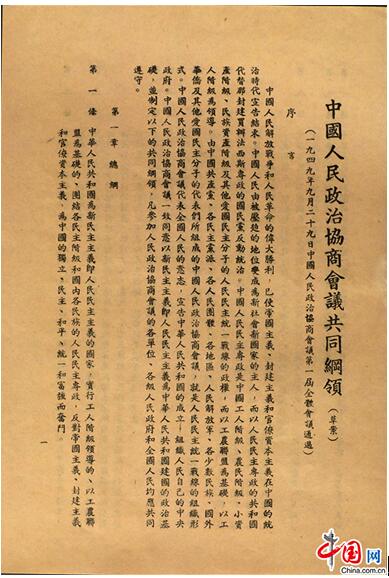 中國人民政治協商會議共同綱領（草案）
（一九四九年九月二十九日中國人民政治協商會議第一屆全體會議通過）
序言
中國人民解放戰爭和人民革命的偉大勝利，已使帝國主義、封建主義和官僚資本主義在中國的統
治時代宣告結束。中國人民由被壓迫的地位變成為新社會新國家的主人，而以人民民主專政的共和國
代替那封建買辦法西斯專政的國民黨反動統治。中國人民民主專政是中國工人階級、農民階級、小資
產階級、民族資產階級及其他愛國民主分子的人民民主統一戰線的政權，而以工農聯盟為基礎，以工
人階級為領導。由中國共產黨、各民主黨派、各人民團體、各地區、人民解放軍、各少數民族、國外
華僑及其他愛國民主分子的代表們所組成的中國人民政治協商會議，就是人民民主統一戰線的組織形
式。中國人民政治協商會議代表全國人民的意志，宣告中華人民共和國的成立，組織人民自己的中央
政府。中國人民政治協商會議一致同意以新民主主義即人民民主主義為中華人民共和國建國的政治基
礎，並制定以下的共同綱領，凡參加人民政治協商會議的各單位、各級人民政府和全國人民均應共同
遵守。
第一章 總綱
第一條 中華人民共和國為新民主主義即人民民主主義的國家，實行工人階級領導的、以工農聯
盟為基礎的、團結各民主階級和國內各民族的人民民主專政，反對帝國主義、封建主義
和官僚資本主義，為中國的獨立、民主、和平、統一和富強而奮鬥
一
中国网
China.com.cn